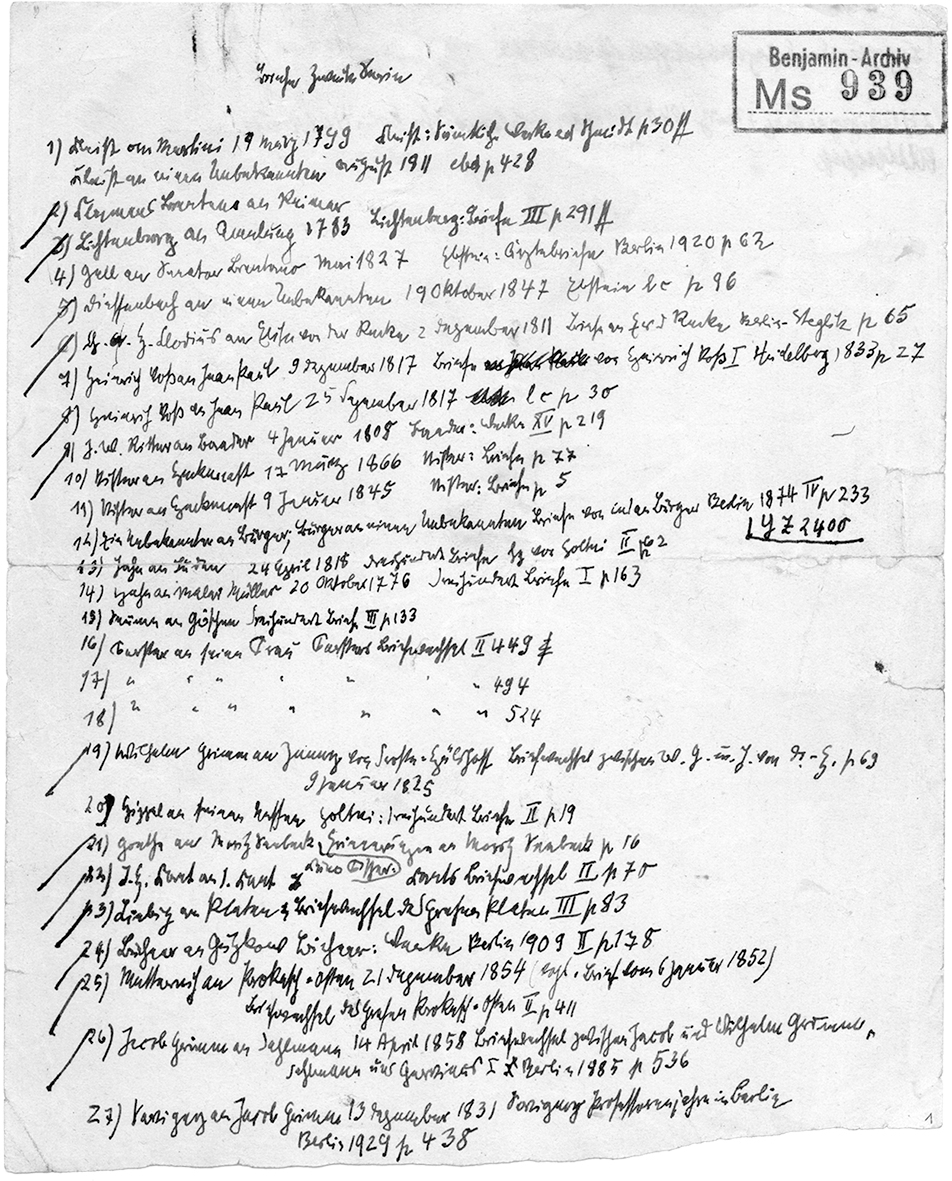 Benjamin-Archiv
Ms 939
Briefe Zweite Serie
1) Kleist an Martini 19 März 1799 Kleist: Sämtliche Werke ed Schmidt p 30 ff
Kleist an einen Unbekannten August 1811 ebd p 428
2) Clemens Brentano an Reimer
3) Lichtenberg an Amelung 1783 Lichtenberg: Briefe III p 291 ff
4) Gall an Senator Brentano Mai 1827 Ebstein: Ärztebriefe Berlin 1920 p 62
5) Dieffenbach an einen Unbekannten 19 Oktober 1847 Ebstein l c p 96
6) Clodius an Elisa von der Recke 2 Dezember 1811 Briefe an E v d Recke Berlin-Steglitz p 65
7) Heinrich Voß an Jean Paul 9 Dezember 1817 Briefe von Heinrich Voß I Heidelberg 1833 p 27
8) Heinrich Voß an Jean Paul 25 Dezember 1817 l c p 30
9) J. W. Ritter an Baader 4 Januar 1808 Baader: Werke XV p 219
10) an 17 März 1866 Briefe p 77
11) an 9 Januar 1845 Briefe p 5
12) Ein Unbekannter an Bürger; Bürger an einen Unbekannten Briefe von und an Bürger Berlin 1874 IV p 233
| Yz 2400
13) Jahn an Luden 24 April 1815 Dreihundert Briefe hg von Holtei II p 62
14) an Maler Müller 20 Oktober 1776 Dreihundert Briefe I p 163
15) Seume an Göschen Dreihundert Briefe III p 133
16) Forster an seine Frau Forsters Briefwechsel II 449
17) " " " " " " " 494
18) " " " " " " " 524
19) Wilhelm Grimm an Jenny von Droste-Hülshoff Briefwechsel zwischen W. G. u. J. von Dr.-H. p 69
9 Januar 1825
20) Hippel an seinen Neffen Holtei: Dreihundert Briefe II p 19
21) Goethe an Moritz Seebeck Erinnerungen an Moritz Seebeck p 16
Kuno Fischer:
22) J. H. Kant an I. Kant Kants Briefwechsel II p 70
23) Liebig an Platen Briefwechsel des Grafen Platen III p 83
24) Büchner an Gutzkow Büchner: Werke Berlin 1909 II p 178
25) Metternich an Prokesch-Osten 21 Dezember 1854 (vgl. Brief vom 6 Januar 1852)
Briefwechsel des Grafen Prokesch-Osten II p 411
26) Jacob Grimm an Dahlmann 14 April 1858 Briefwechsel zwischen Jacob und Wilhelm Grimm,
Dahlmann und Gervinus I Berlin 1885 p 536
27) Savigny an Jacob Grimm 13 Dezember 1831 Savignys Professorenjahre in Berlin
Berlin 1929 p 438
1